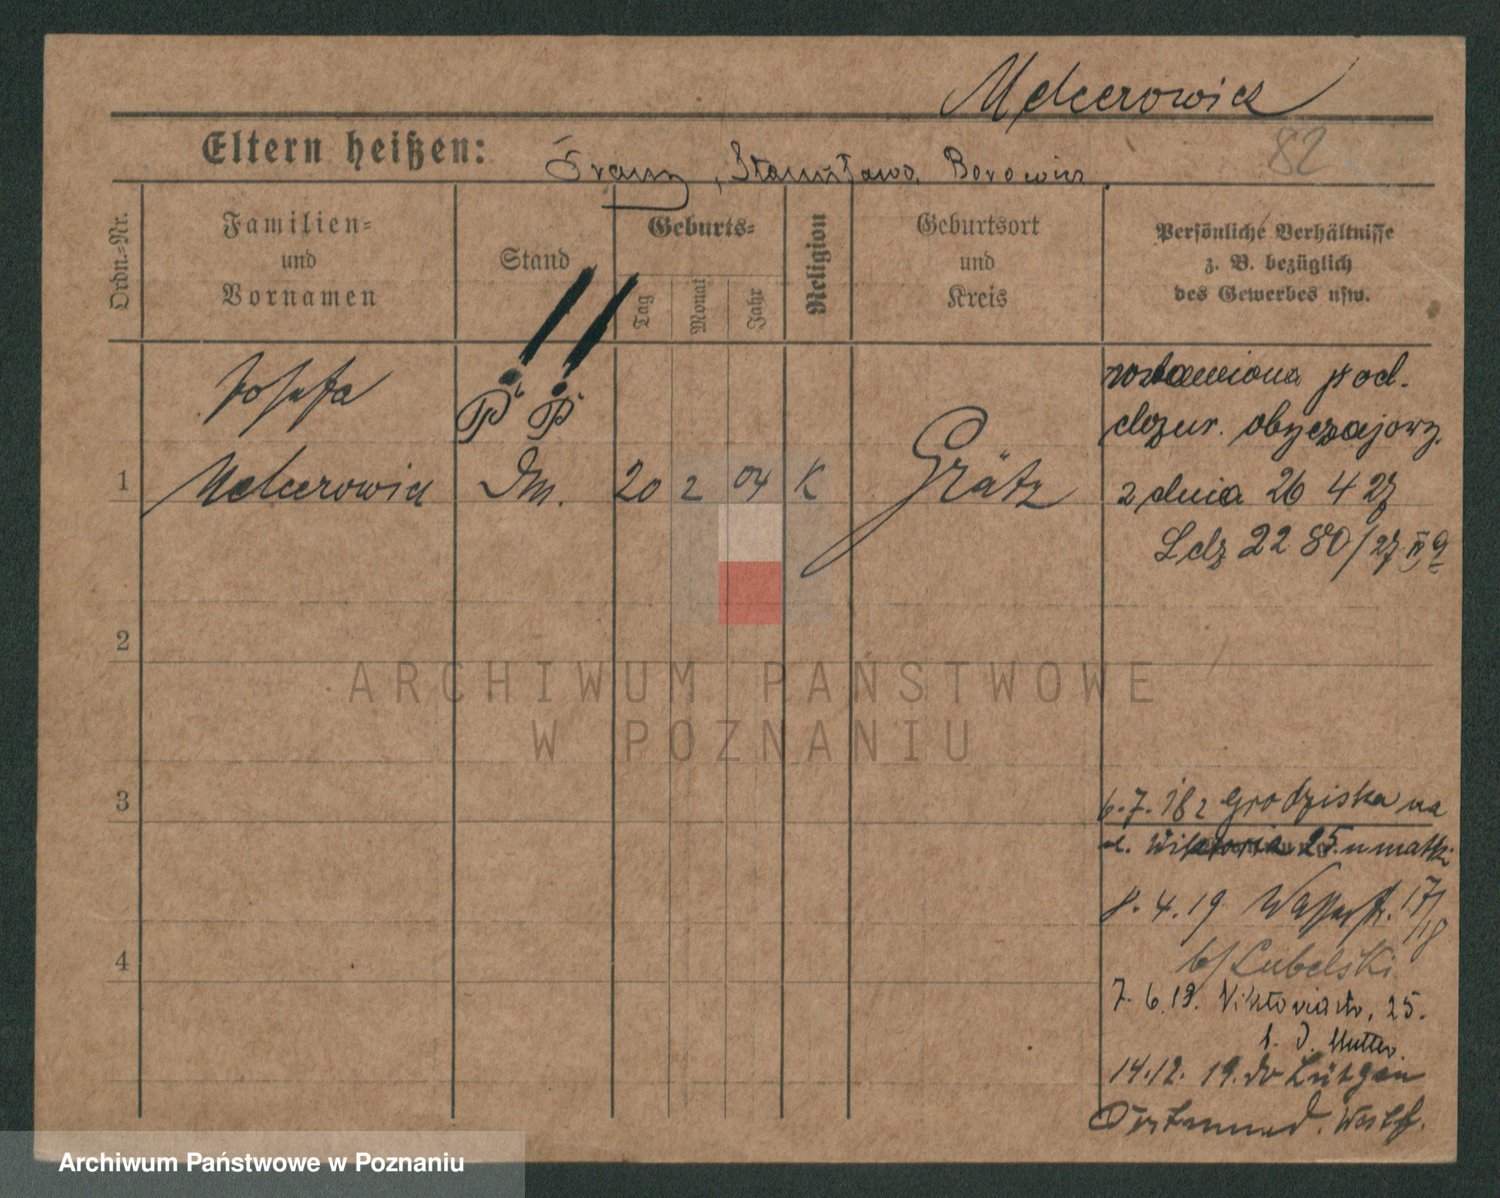 Melcerowicz
82
Eltern heißen: Franz, Stanisława Borowicz
Ordn.-Nr.
Familien-
und
Vornamen
Stand
Geburts-
Tag
Monat
Jahr
Religion
Geburtsort
und
Kreis
Persönliche Verhältnisse
z. B. bezüglich
des Gewerbes usw.
!!
P. P.
1
Josefa
Melcerowicz
Dm.
20 2 04 K
Grätz
zostawiona pod.
dozur. obyczajowy.
z dnia 26 4 27
Ldz 2280/27 IV
2
3
4
6.7.18 z Grodziska na
ul. Wiktoria 25 u matki
8.4.19 Wasserstr. 17/18
b/ Lubelski
7.6.19. Viktoriastr. 25.
b. d. Mutter.
14.12.19. do Lütgen
Dortmund. Westf.
ARCHIWUM PAŃSTWOWE
W POZNANIU
Archiwum Państwowe w Poznaniu